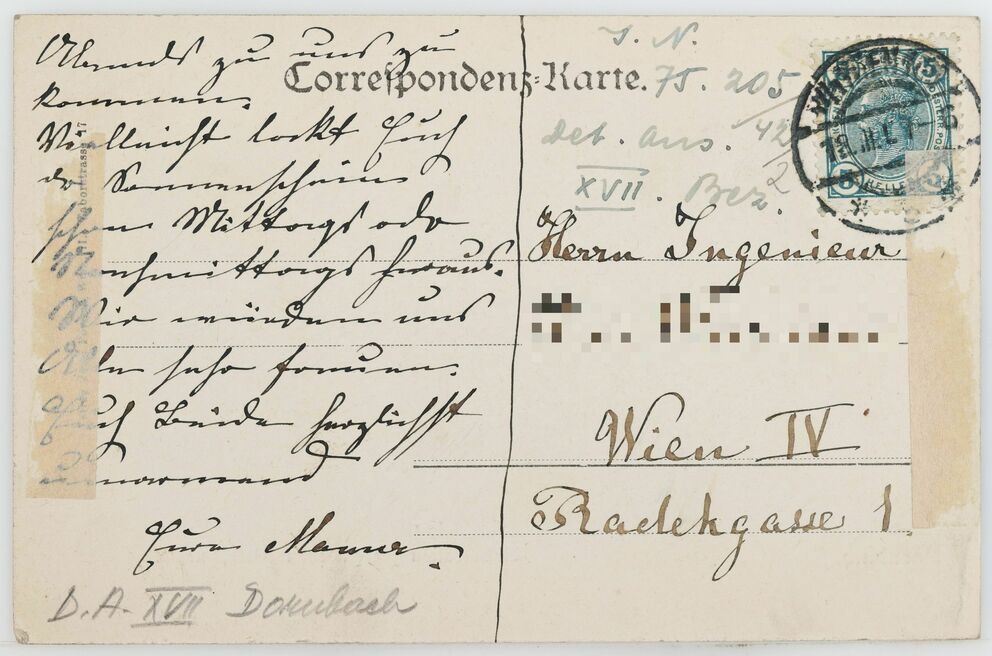 Abends zu uns zu
kommen.
Vielleicht lockt Euch
der Sonnenschein
schon Mittags oder
Nachmittags heraus.
Wir würden uns
Alle sehr freuen.
Euch Beide herzlichst
umarmend
Eure Mama.
D. A. XVII Dornbach
Correspondenz-Karte.
J. N.
75. 205
Det. aus.
42
2
XVII. Bez.
WIEN
5
5
HELLER
Herrn Ingenieur
Wien IV
Radekgasse 1.